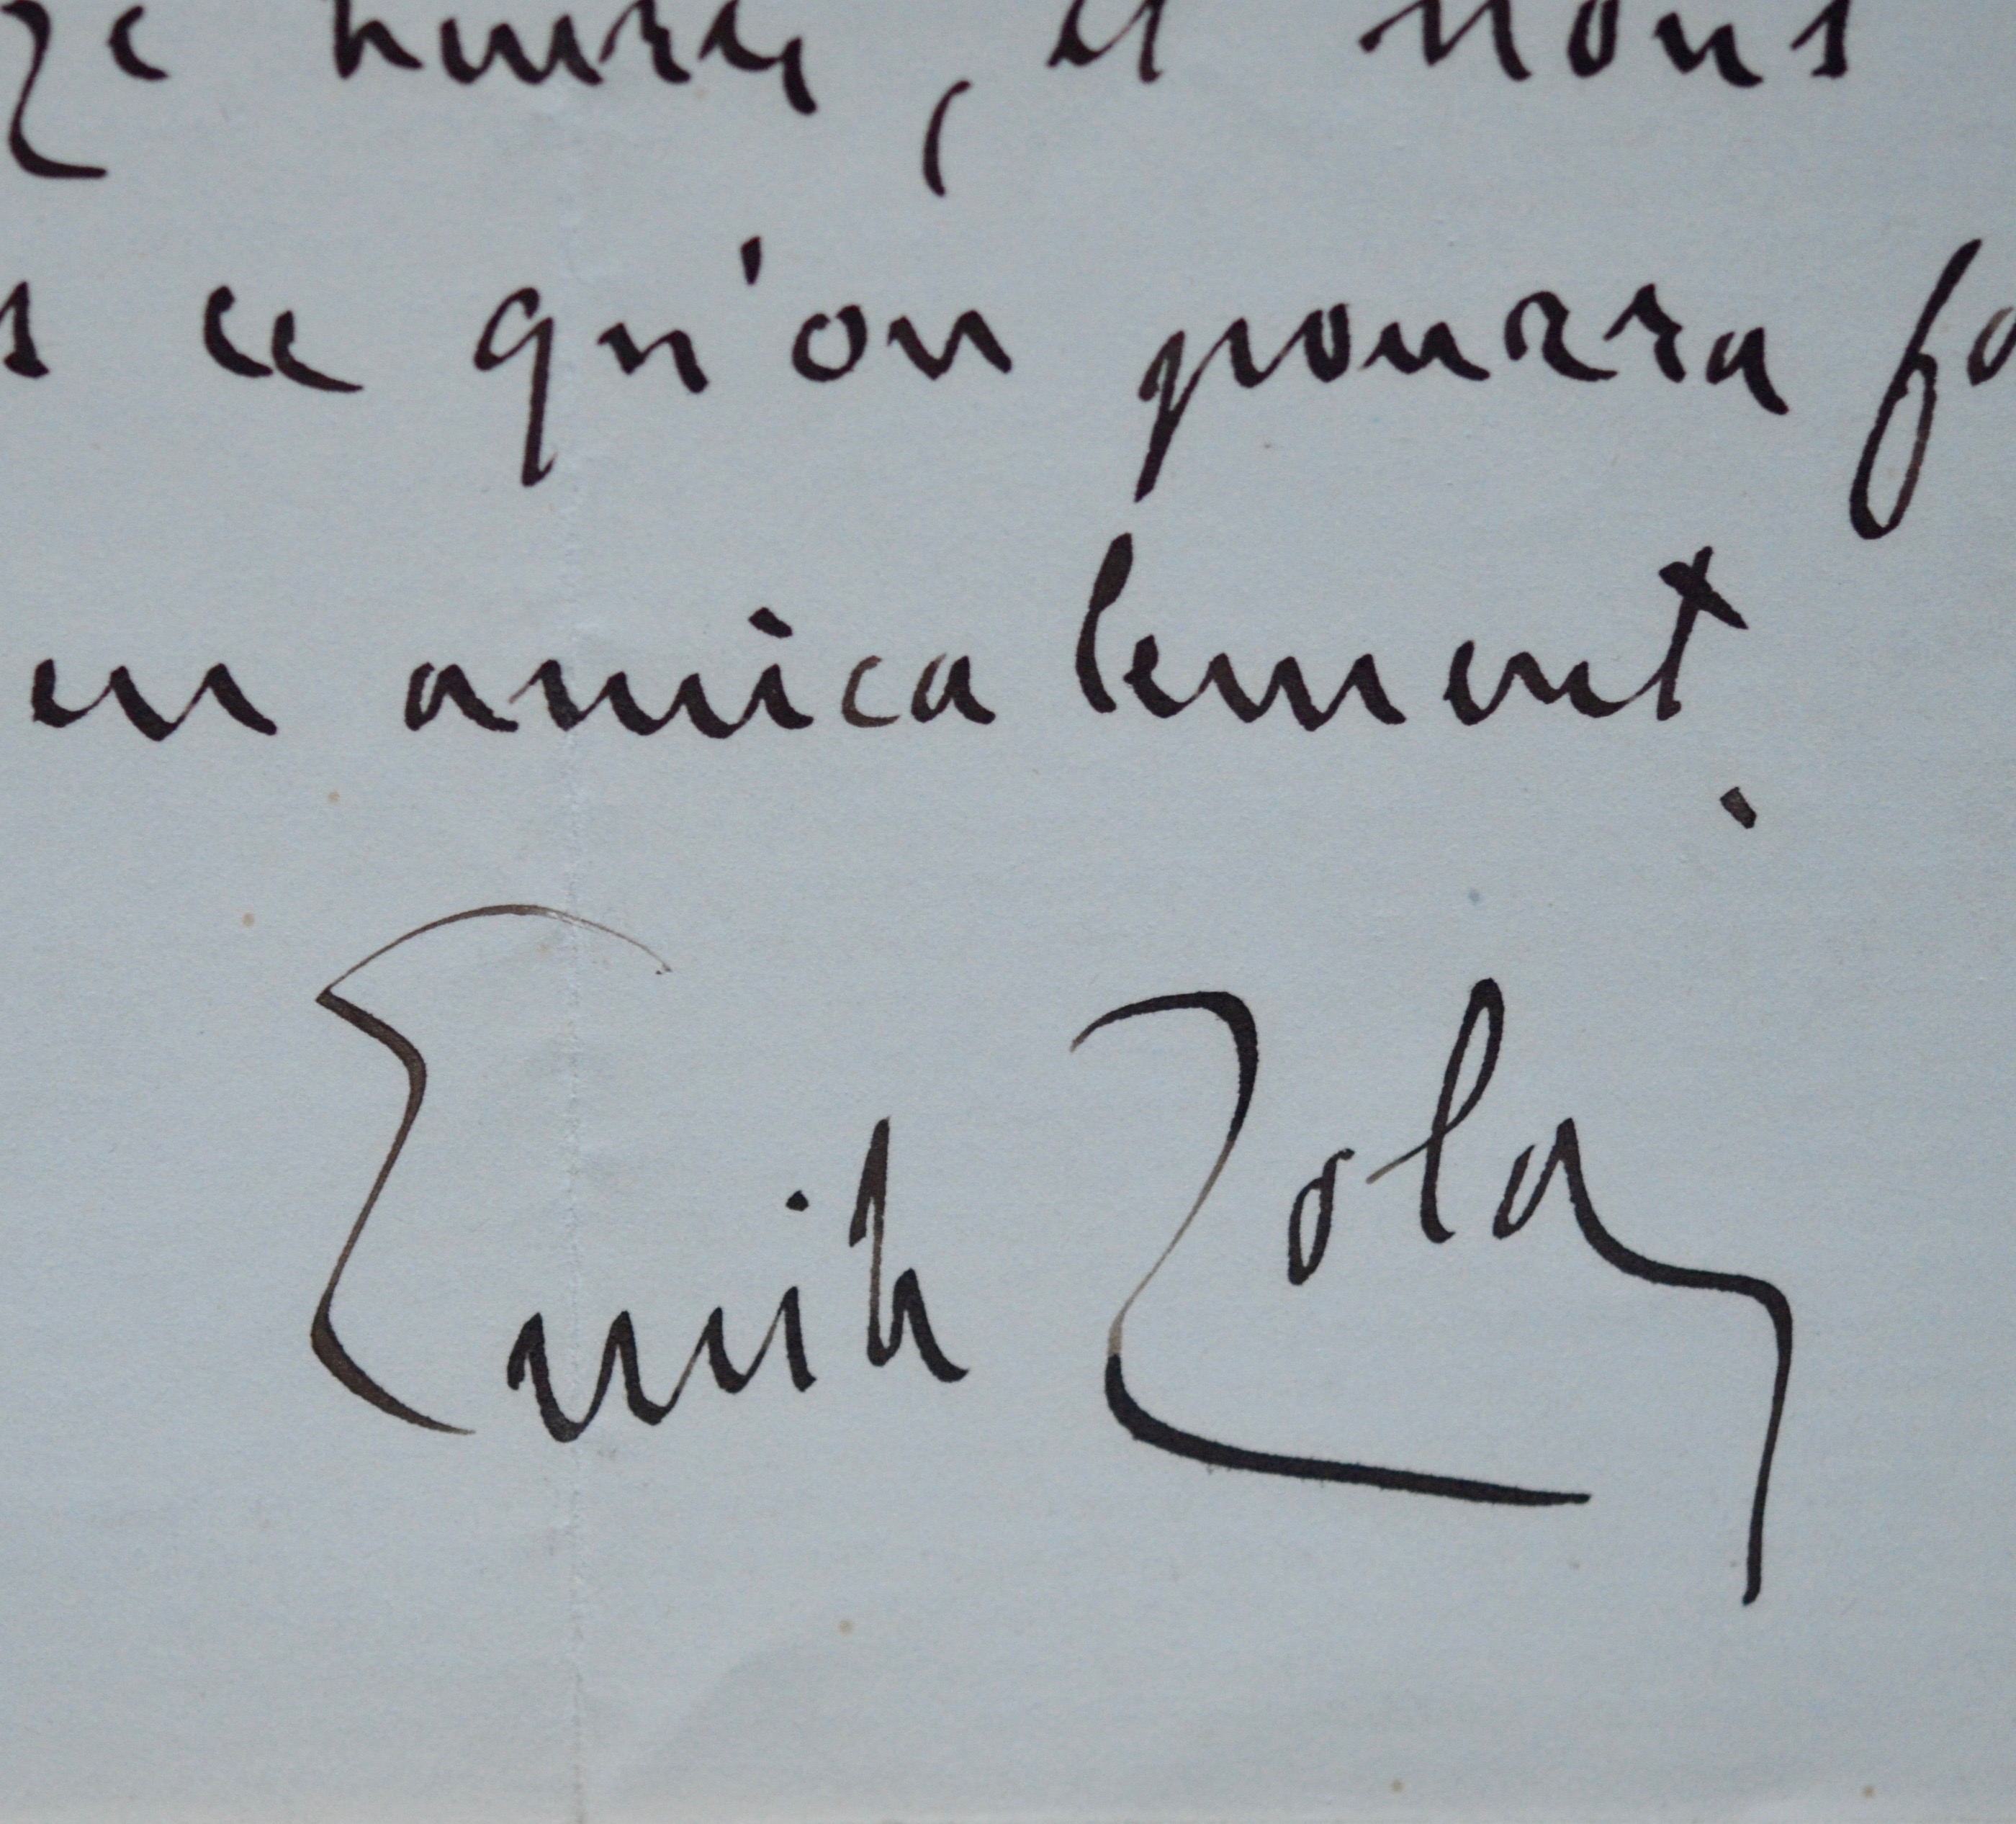 ze heures, et nous
s ce qu'on pourra fa
en amicalement.
Emile Zola